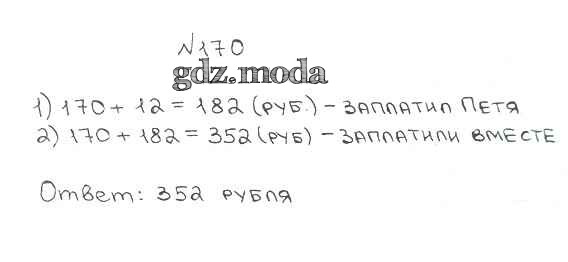 №170
gdz.moda
1) 170 + 12 = 182 (РУБ.) - ЗАПЛАТИЛ ПЕТЯ
2) 170 + 182 = 352 (РУБ) - ЗАПЛАТИЛИ ВМЕСТЕ
Ответ: 352 РУБЛЯ